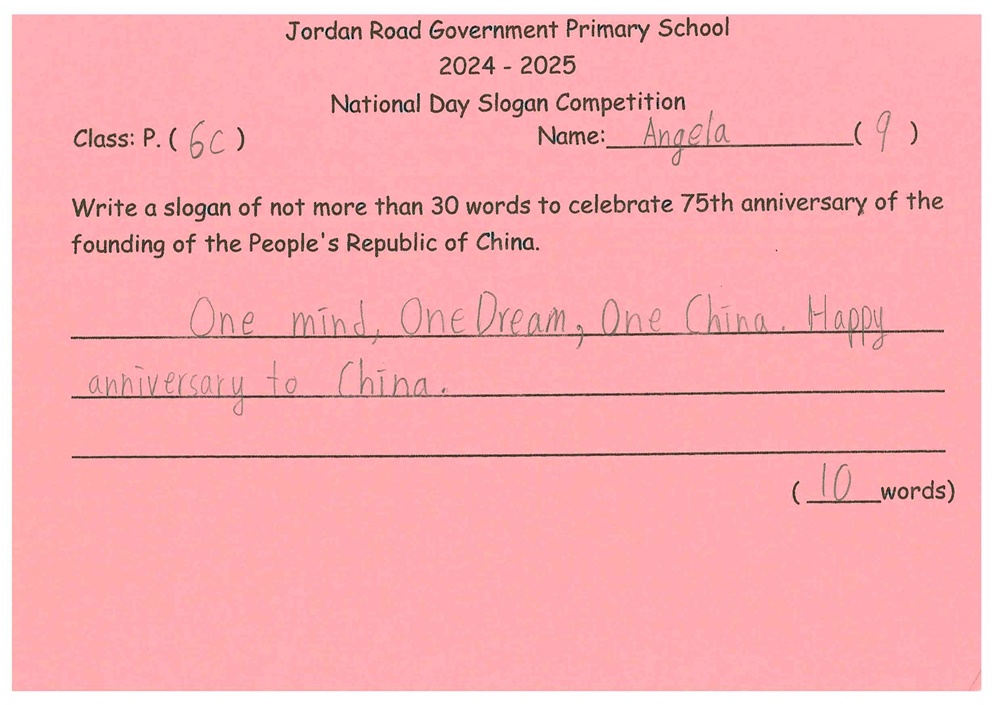 Jordan Road Government Primary School
2024 - 2025
National Day Slogan Competition
Class: P. ( 6C ) Name: Angela ( 9 )
Write a slogan of not more than 30 words to celebrate 75th anniversary of the
founding of the People's Republic of China.
One mind, One Dream, One China. Happy
anniversary to China.
( 10 words)